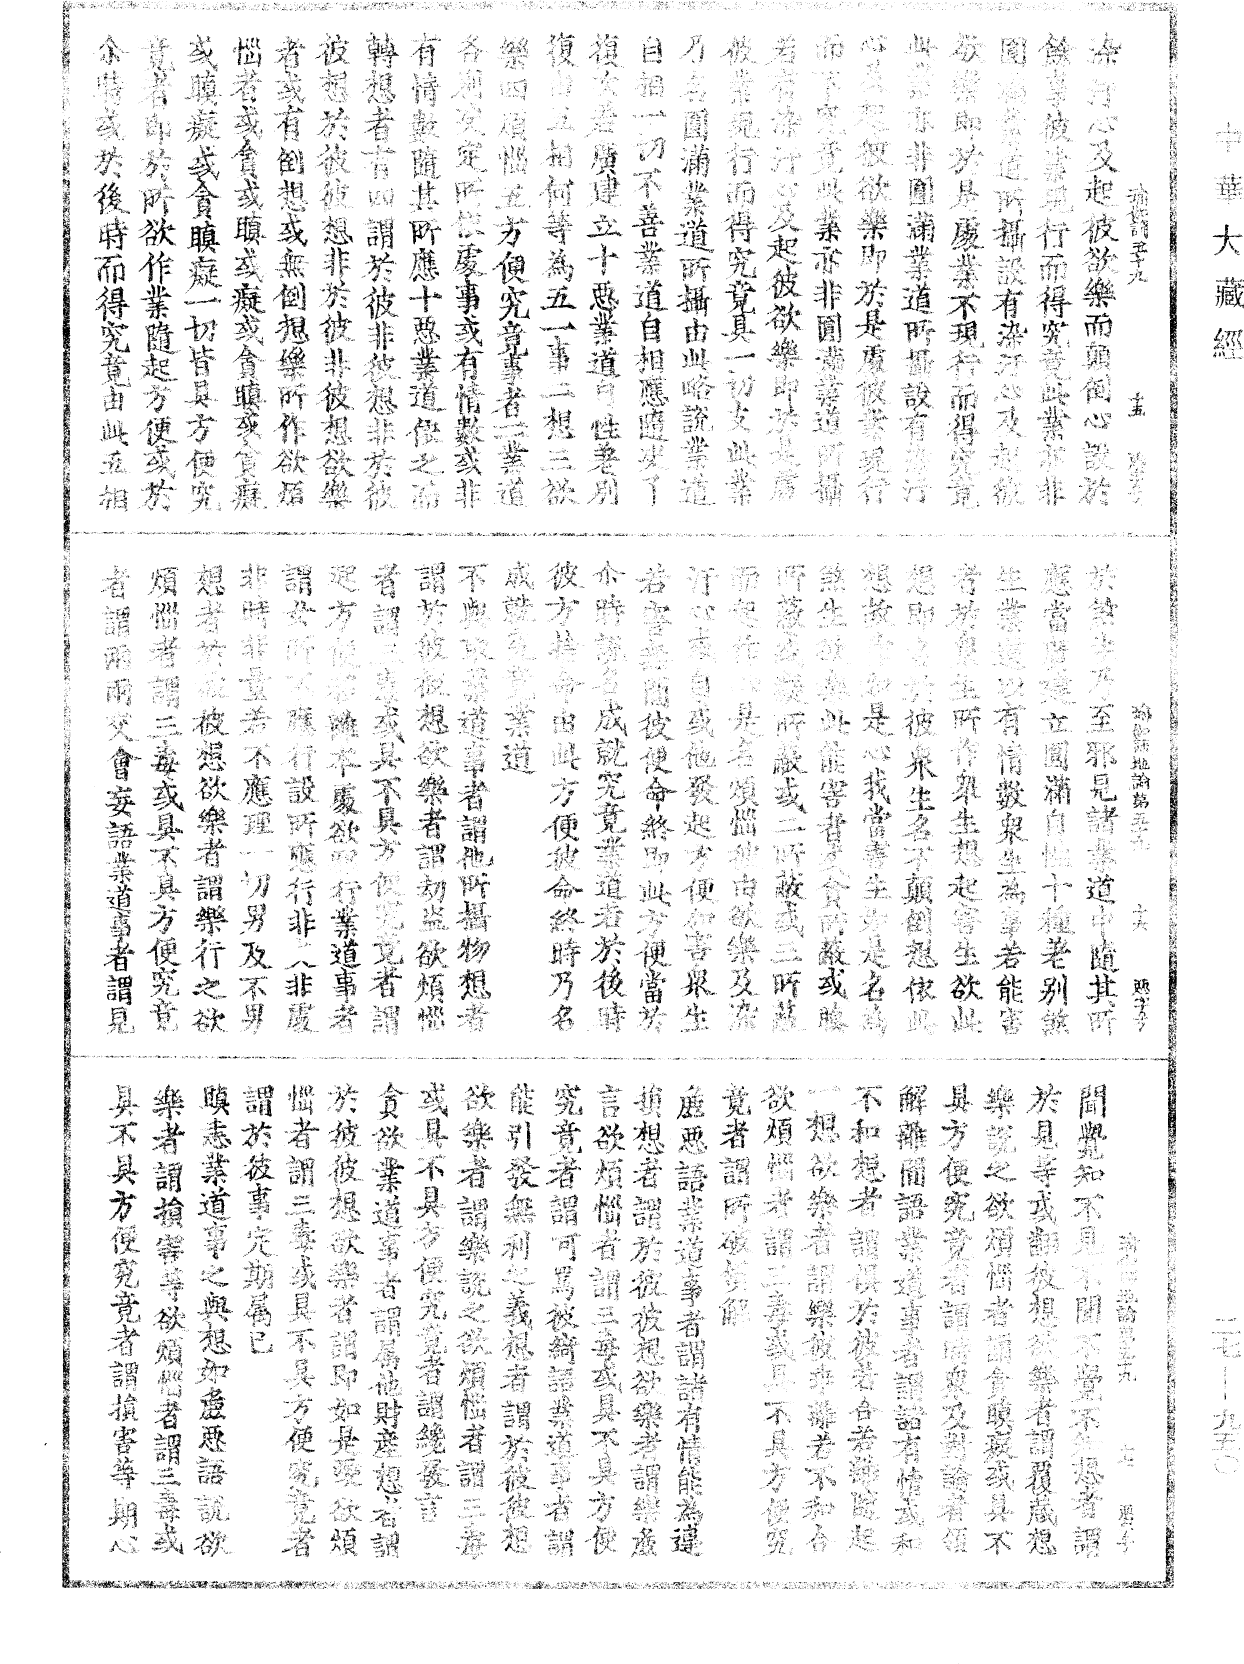 中華大藏經
染汙心及起彼欲樂而顛倒心設於
餘事彼業現行而得究竟此業亦非
圓滿業道所攝設有染汙心及起彼
欲樂即於是處業不現行而得究竟
此業亦非圓滿業道所攝設有染汙
心及起彼欲樂即於是處彼業現行
而不究竟此業亦非圓滿業道所攝
若有染汙心及起彼欲樂即於是處
彼業現行而得究竟具一切支此業
乃名圓滿業道所攝由此略說業道
自相一切不善業道自相應隨決了
復次若廣建立十惡業道自性差別
復由五相何等為五一事二想三欲
樂四煩惱五方便究竟事者一一業道
各別決定所依處事或有情數或非
有情數隨其所應十惡業道依之而
轉想者有四謂於彼非彼想非於彼
彼想於彼彼想非於彼非彼想欲樂
者或有倒想或無倒想樂所作欲煩
惱者或貪或瞋或癡或貪瞋或貪癡
或瞋癡或貪瞋癡一切皆具方便究
竟者即於所欲作業隨起方便或於
尒時或於後時而得究竟由此五相
十五
於殺生乃至邪見諸業道中隨其所
應當廣建立圓滿自性十種差別煞
生業道以有情數眾生為事若能害
者於眾生所作眾生想起害生欲此
想即名於彼眾生名不顛倒想依此
想故作如是心我當害生如是名為
煞生欲樂此能害者或貪所蔽或瞋
所蔽或癡所蔽或二所蔽或三所蔽
而起作心是名煩惱彼由欲樂及染
汙心或自或他發起方便加害眾生
若害無間彼便命終即此方便當於
尒時說名成就究竟業道若於後時
彼方捨命由此方便彼命終時乃名
成就究竟業道
不與取業道事者謂他所攝物想者
謂於彼彼想欲樂者謂劫盜欲煩惱
者謂三毒或具不具方便究竟者謂
起方便移離本處欲邪行業道事者
謂女所不應行設所應行非支非處
非時非量若不應理一切男及不男
想者於彼彼想欲樂者謂樂行之欲
煩惱者謂三毒或具不具方便究竟
者謂兩兩交會妄語業道事者謂見
瑜伽師地論第五十九
十六
聞覺知不見不聞不覺不知想者謂
於見等或翻彼想欲樂者謂覆藏想
樂說之欲煩惱者謂貪瞋癡或具不
具方便究竟者謂時眾及對論者領
解離間語業道事者謂諸有情或和
不和想者謂俱於彼若合若離隨起
一想欲樂者謂樂彼乖離若不和合
欲煩惱者謂三毒或具不具方便究
竟者謂所破領解
麁惡語業道事者謂諸有情能為違
損想者謂於彼彼想欲樂者謂樂麁
言欲煩惱者謂三毒或具不具方便
究竟者謂呵罵彼綺語業道事者謂
能引發無利之義想者謂於彼彼想
欲樂者謂樂說之欲煩惱者謂三毒
或具不具方便究竟者謂纔發言
貪欲業道事者謂屬他財產想者謂
於彼彼想欲樂者謂即如是愛欲煩
惱者謂三毒或具不具方便究竟者
謂於彼事定期屬已
瞋恚業道事之與想如麁惡語說欲
樂者謂損害等欲煩惱者謂三毒或
具不具方便究竟者謂損害等期心
二七—九五〇